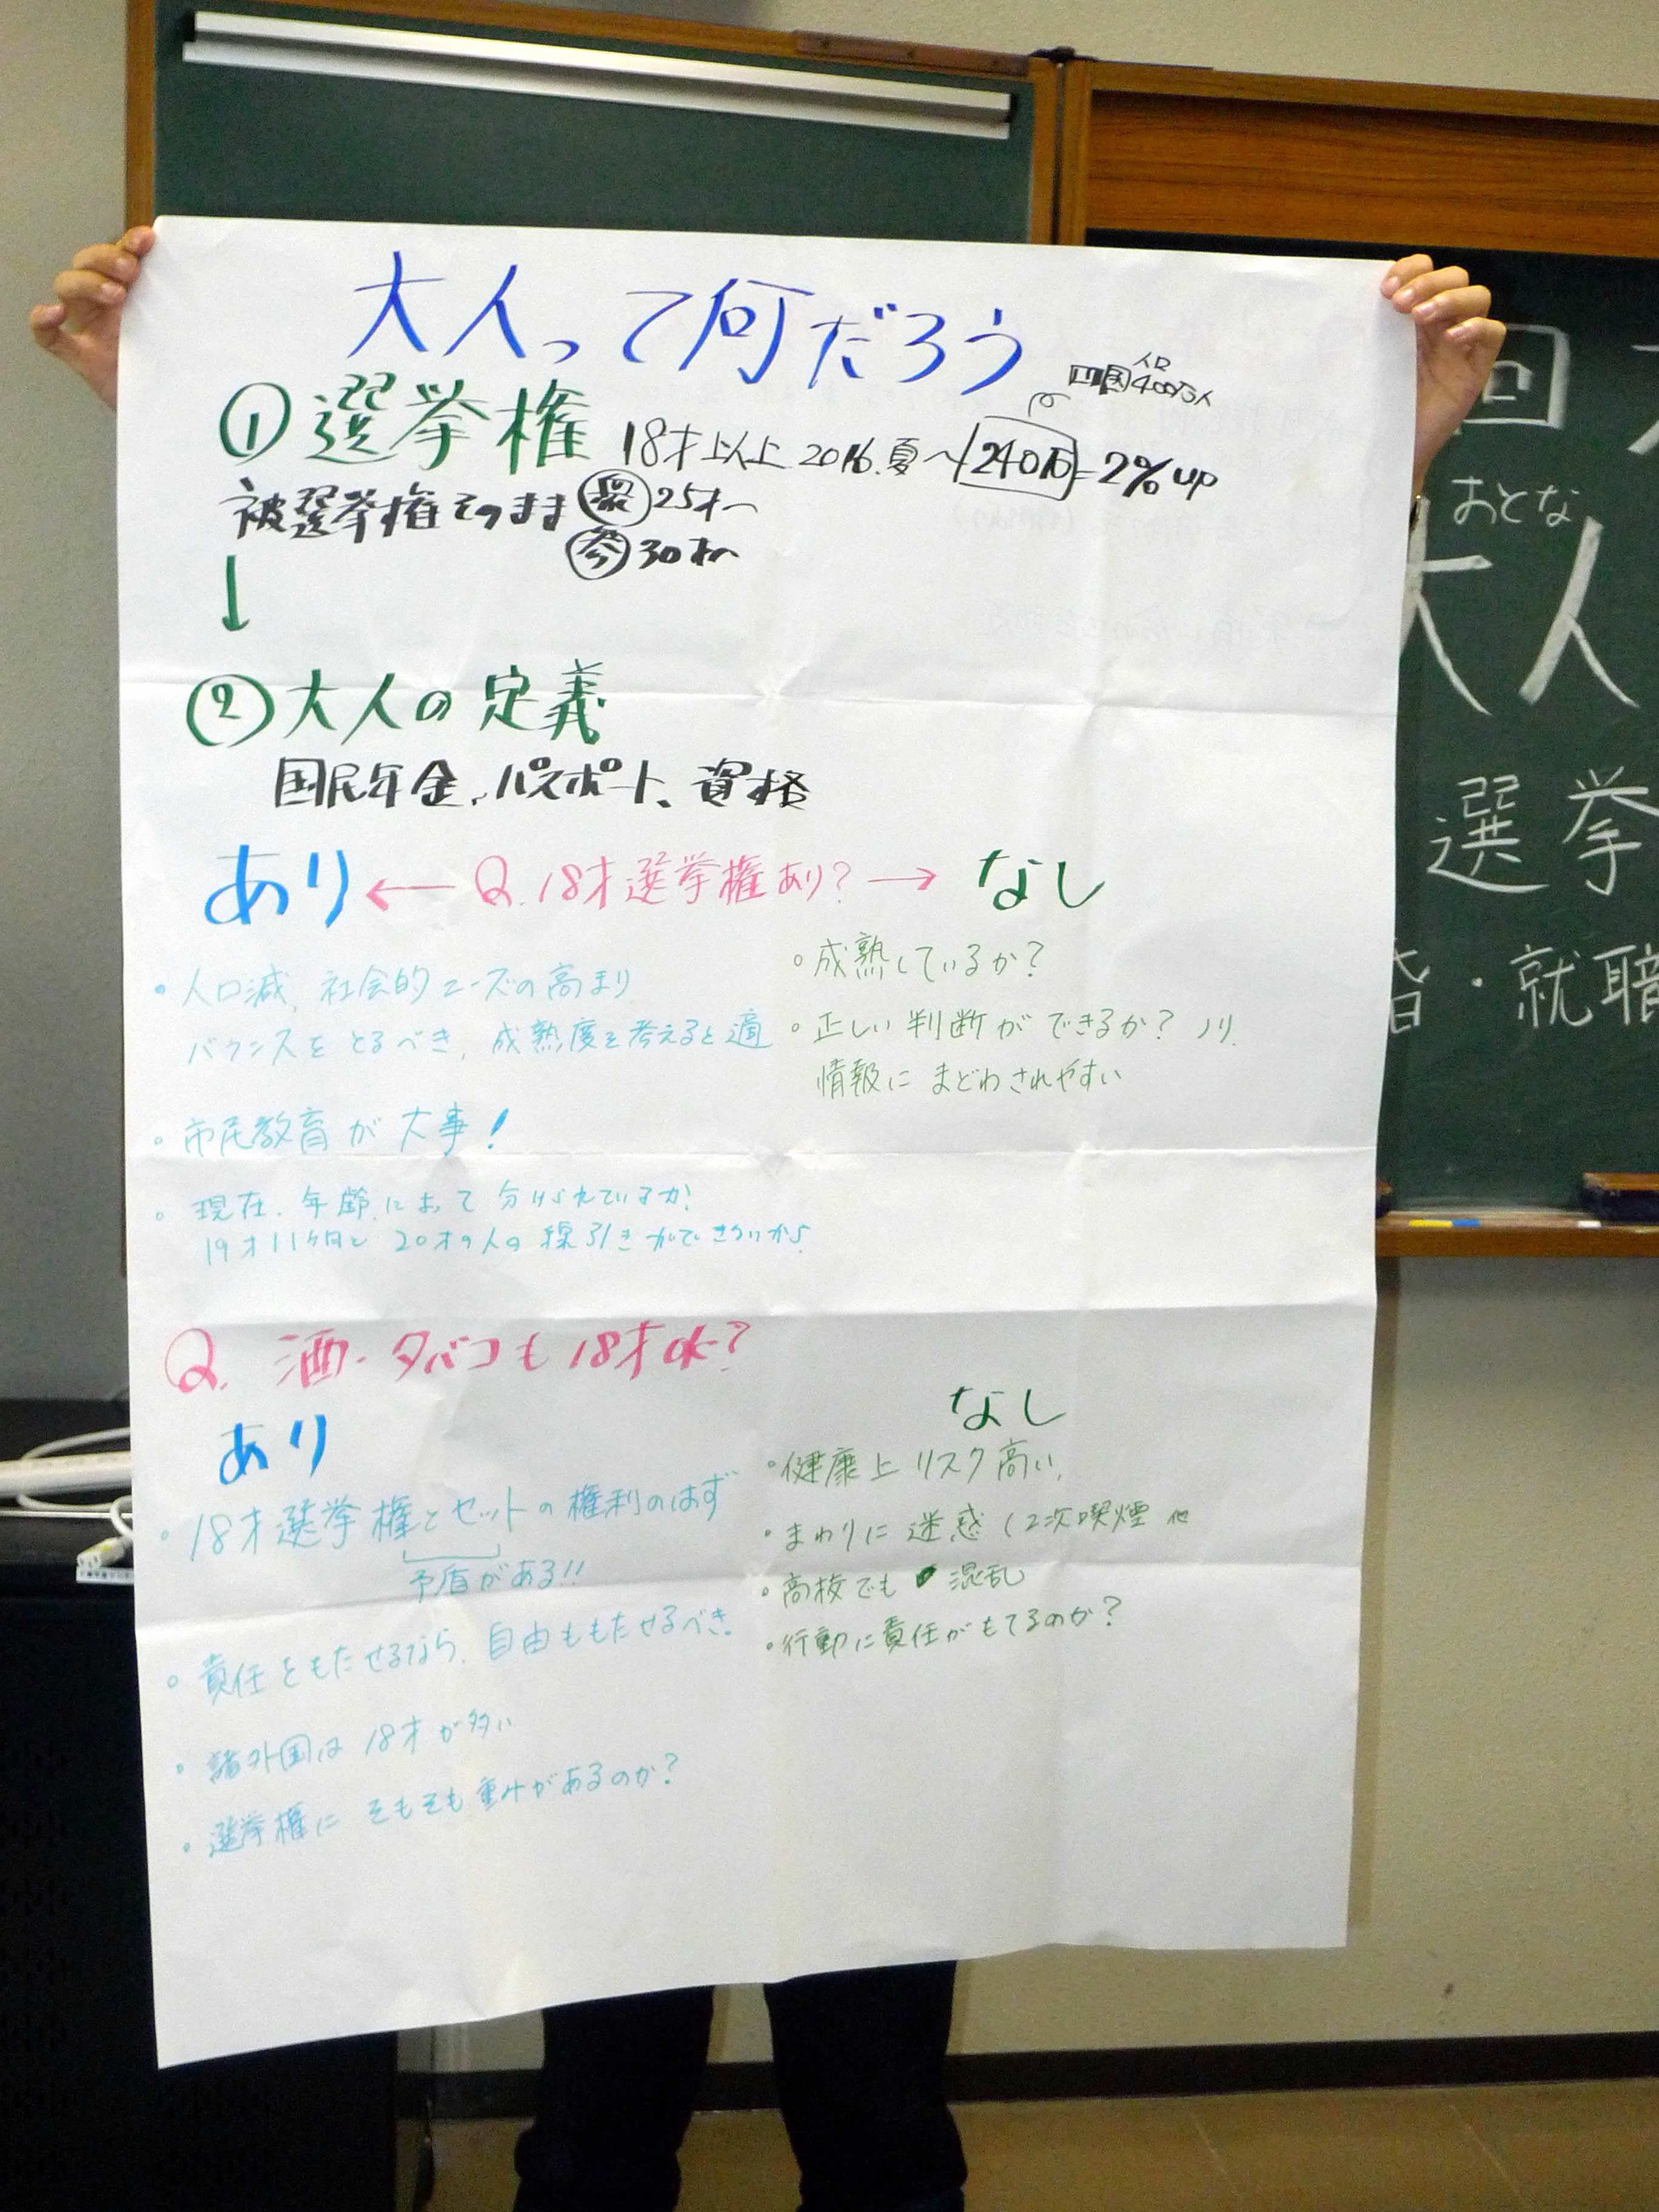 大人って何だろう
四国人口400万人
①選挙権 18才以上 2016.夏〜 240万=2%up
被選挙権そのまま 衆25才〜
参30才〜
↓
②大人の定義
国民年金、パスポート、資格
あり ← Q.18才選挙権あり? → なし
・人口減、社会的ニーズの高まり
バランスをとるべき、成熟度を考えると適
・市民教育が大事!
・現在、年齢によって分けられているが、
19才11ヶ月と20才の人の線引き
・成熟しているか?
・正しい判断ができるか? ノリ、
情報にまどわされやすい
Q. 酒・タバコも18才ok?
あり
・18才選挙権とセットの権利のはず
矛盾がある!!
・責任をもたせるなら、自由ももたせるべき。
・諸外国は18才が多い
・選挙権にそもそも重みがあるのか?
なし
・健康上リスク高い、
・まわりに迷惑(2次喫煙 他
・高校でも 混乱
・行動に責任がもてるのか?
回
おとな
大人
選挙
・就職